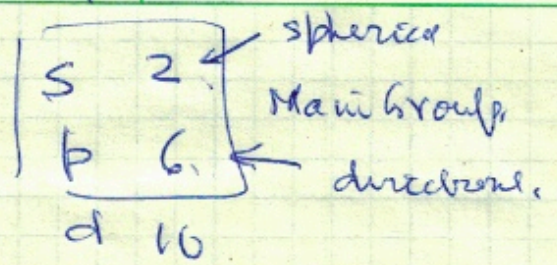 spherical
S 2
Main Group.
p 6
directional.
d 10